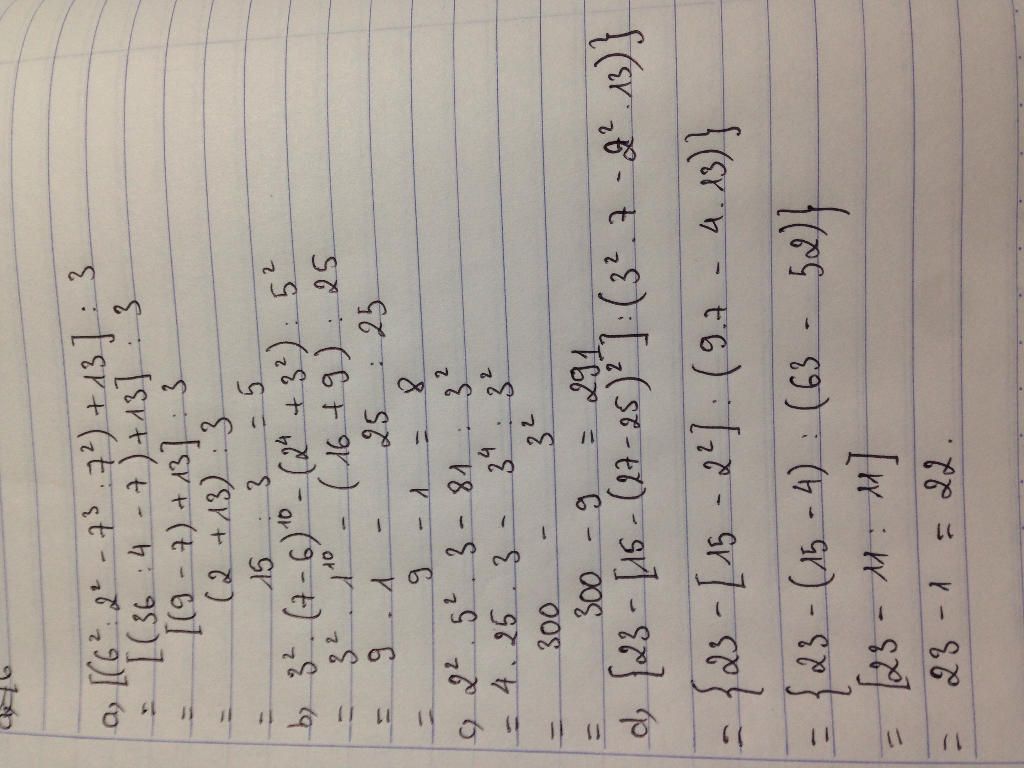 a, [(6² : 2² - 7³ : 7²) + 13] : 3
= [(36 : 4 - 7) + 13] : 3
= [(9 - 7) + 13] : 3
= (2 + 13) : 3
= 15 : 3 = 5
b, 3² . (7 - 6)¹⁰ - (2⁴ + 3²) : 5²
= 3² . 1¹⁰ - (16 + 9) : 25
= 9 . 1 - 25 : 25
= 9 - 1 = 8
c, 2² . 5² . 3 - 81 : 3²
= 4 . 25 . 3 - 3⁴ : 3²
= 300 - 3²
= 300 - 9 = 291
d, {23 - [15 - (27 - 25)²] : (3² . 7 - 2² . 13)}
= {23 - [15 - 2²] : (9.7 - 4.13)}
= {23 - (15 - 4) : (63 - 52)}
= [23 - 11 : 11]
= 23 - 1 = 22.